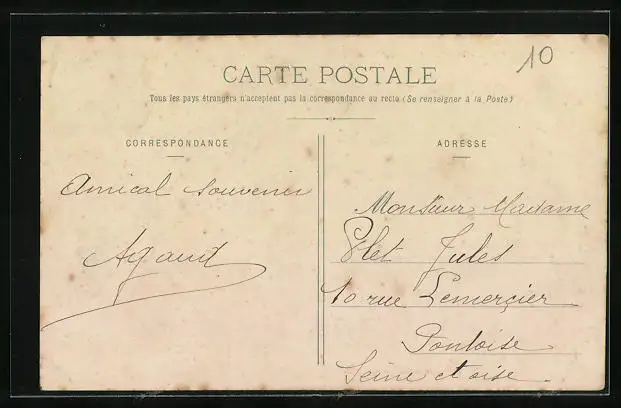 10
CARTE POSTALE
Tous les pays étrangers n'acceptent pas la correspondance au recto (Se renseigner à la Poste)
CORRESPONDANCE
Amical souvenir
ADRESSE
Monsieur Madame
Jules
10 rue Lemerçier
Pontoise
Seine et oise.